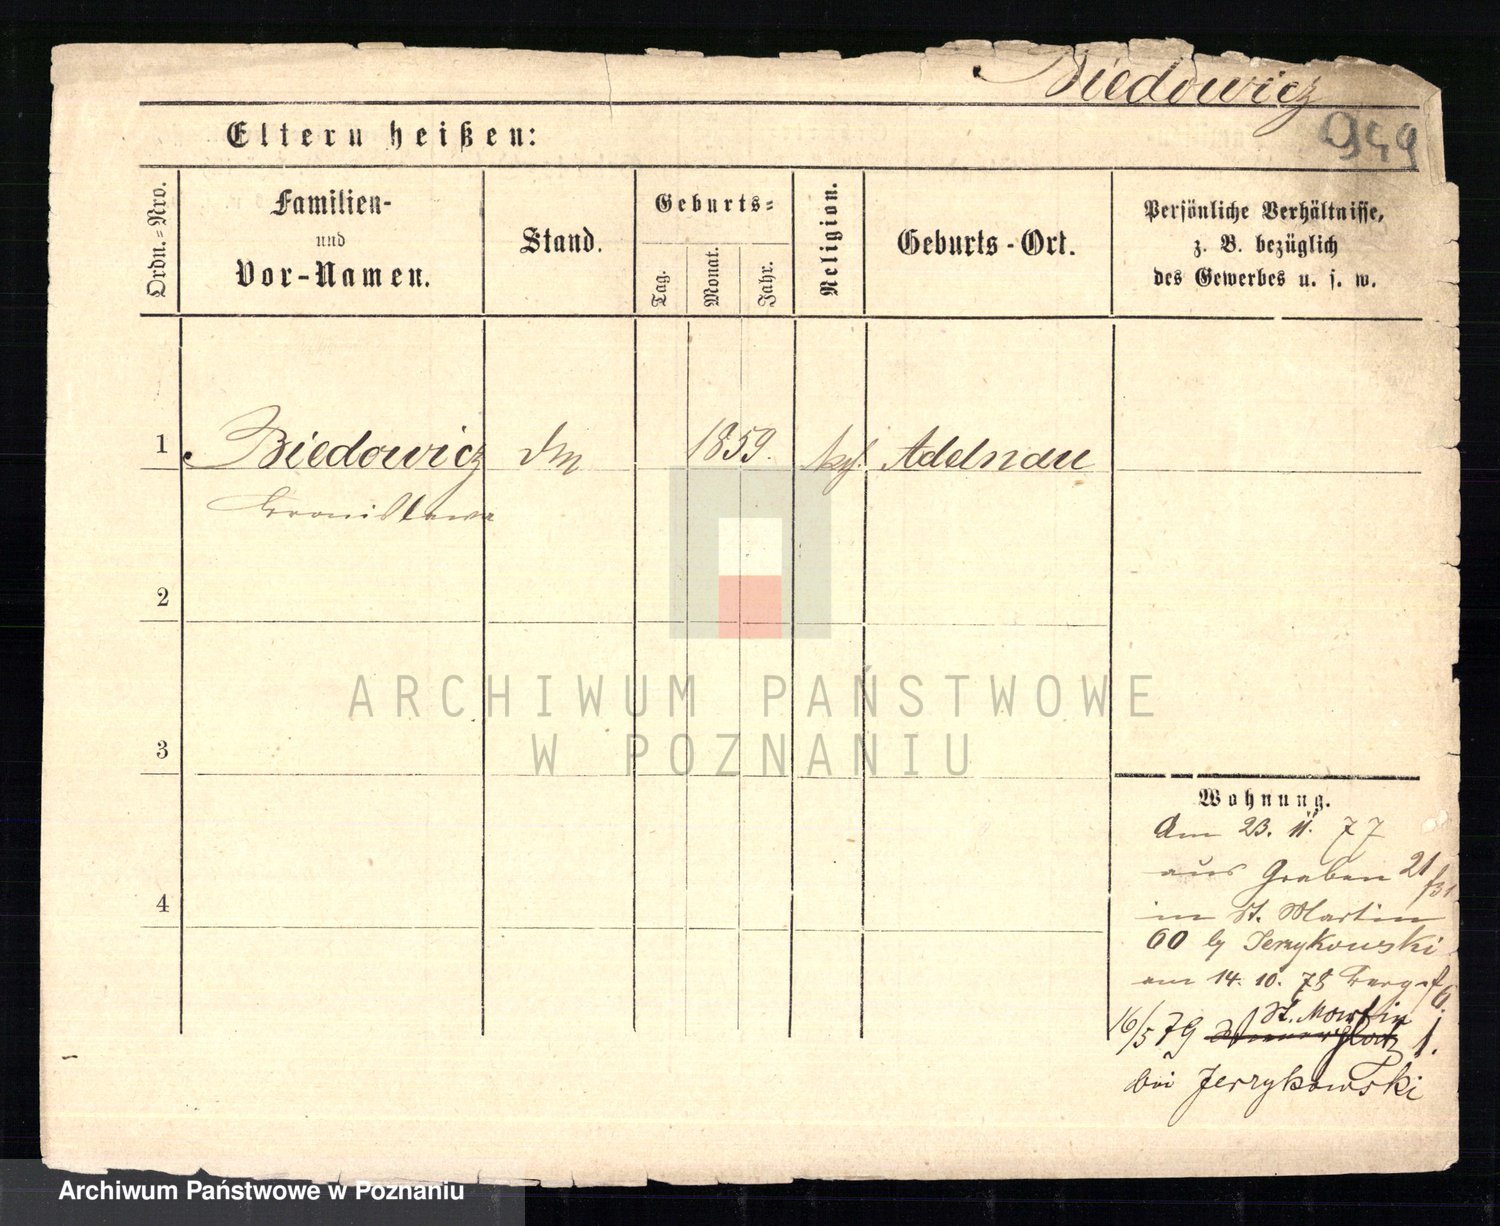 Biedowicz
949
Eltern heißen:
Ordn.-Nro.
Familien-
und
Vor-Namen.
Stand.
Geburts-
Tag.
Monat.
Jahr.
Religion.
Geburts-Ort.
Persönliche Verhältnisse,
z. B. bezüglich
des Gewerbes u. s. w.
1
Biedowicz
1859.
Adelnau
Bronislawa
2
3
4
ARCHIWUM PAŃSTWOWE
W POZNANIU
Wohnung.
Am 23. 11. 77
aus Graben 21
in St. Martin
60 by Jerzykowski
am 14. 10. 78 Berg
St. Martin
16/5 79 1.
bei Jerzykowski
Archiwum Państwowe w Poznaniu